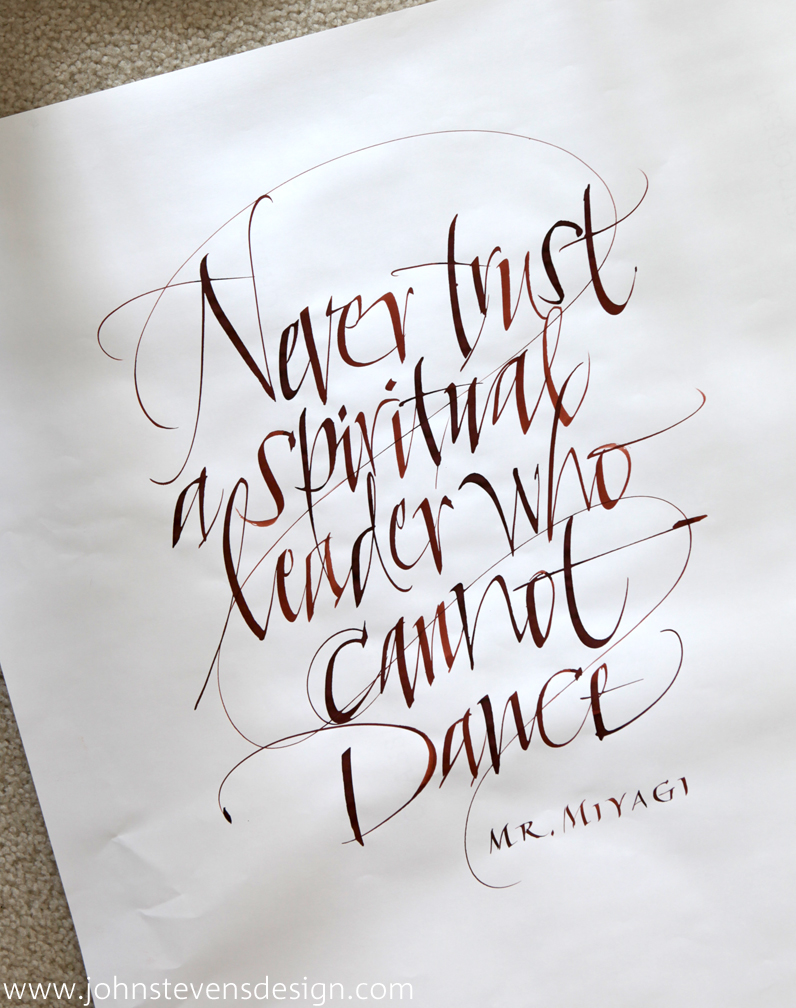 Never trust
a spiritual
leader who
cannot
Dance
MR. MIYAGI
www.johnstevensdesign.com